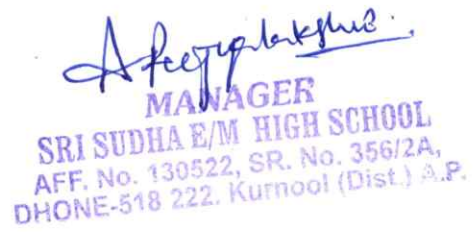 MANAGER
SRI SUDHA E/M HIGH SCHOOL
AFF. No. 130522, SR. No. 356/2A,
DHONE-518 222. Kurnool (Dist.) A.P.